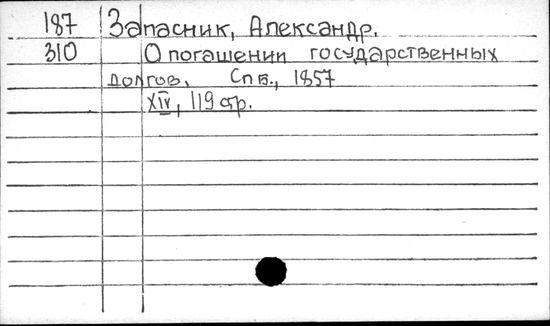 187 Запасник, Александр.
310 О погашении государственных
долгов. Спб., 1857
XIV, 119 стр.